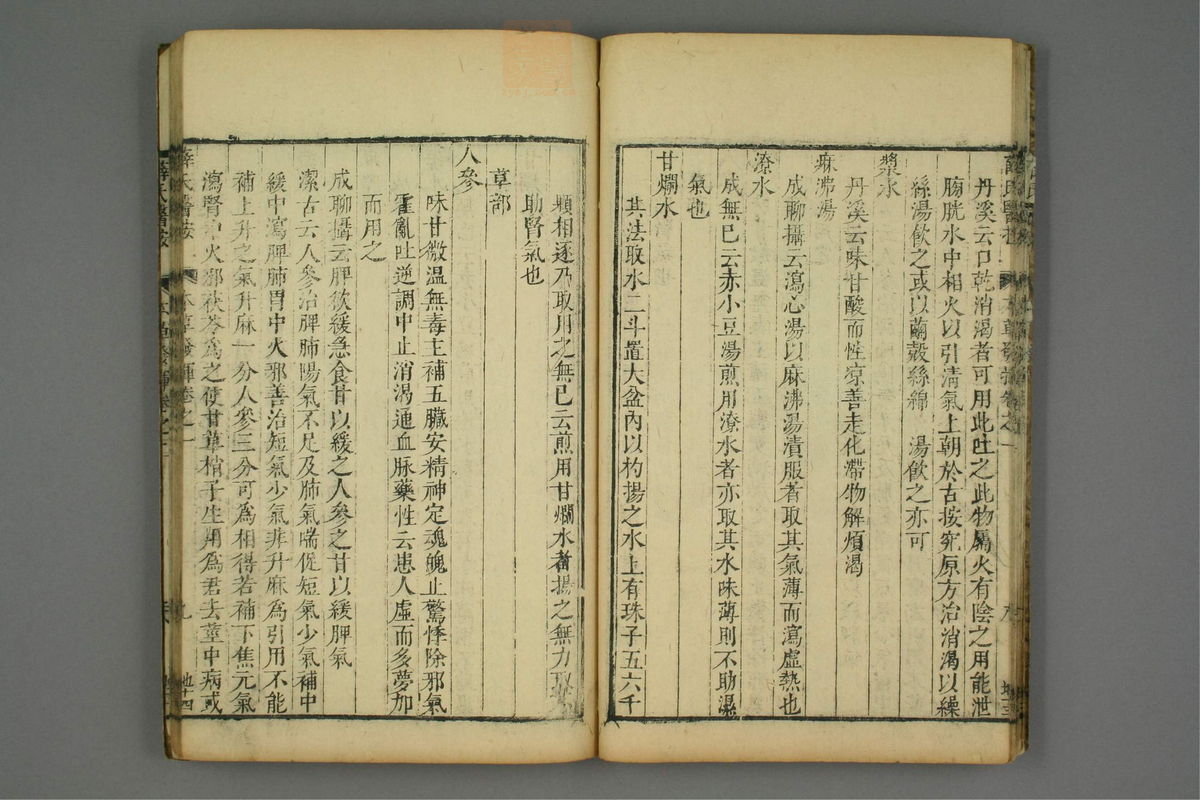 丹溪云口乾消渴者可用此吐之此物屬火有陰之用能泄
膀胱水中相火以引清氣上朝於古按究原方治消渴以繰
絲湯飲之或以繭殼絲綿　湯飲之亦可
漿水
丹溪云味甘酸而性凉善走化滯物解煩渴
麻沸湯
成聊攝云瀉心湯以麻沸湯漬服者取其氣薄而瀉虛熱也
潦水
成無已云赤小豆湯煎用潦水者亦取其水味薄則不助濕
氣也
甘爛水
其法取水二斗置大盆內以杓揚之水上有珠子五六千
顆相逐乃取用之無已云煎用甘爛水者揚之無力取
助腎氣也
草部
人參
味甘微温無毒主補五臟安精神定魂魄止驚悸除邪氣
霍亂吐逆調中止消渴通血脉藥性云患人虛而多夢加
而用之
成聊攝云脾欲緩急食甘以緩之人參之甘以緩脾氣
潔古云人參治脾肺陽氣不足及肺氣喘促短氣少氣補中
緩中瀉脾肺胃中火邪善治短氣少氣非升麻為引用不能
補上升之氣升麻一分人參三分可為相得若補下焦元氣
瀉腎中火邪茯苓為之使甘草梢子生用為君去莖中病或
薛氏醫按
本草發揮卷之一
九
地十四